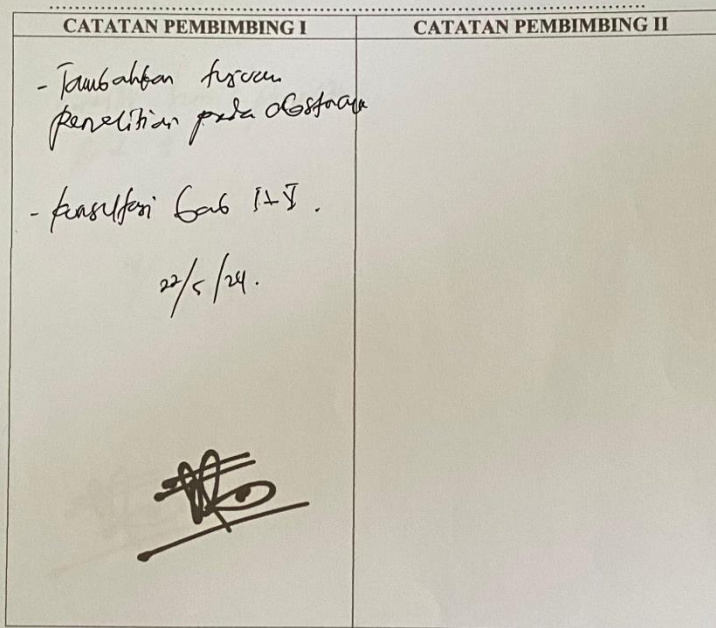 CATATAN PEMBIMBING I
CATATAN PEMBIMBING II
- Tambahkan tujuan
penelitian pada abstrak
- konsultasi bab I-V.
22/5/24.